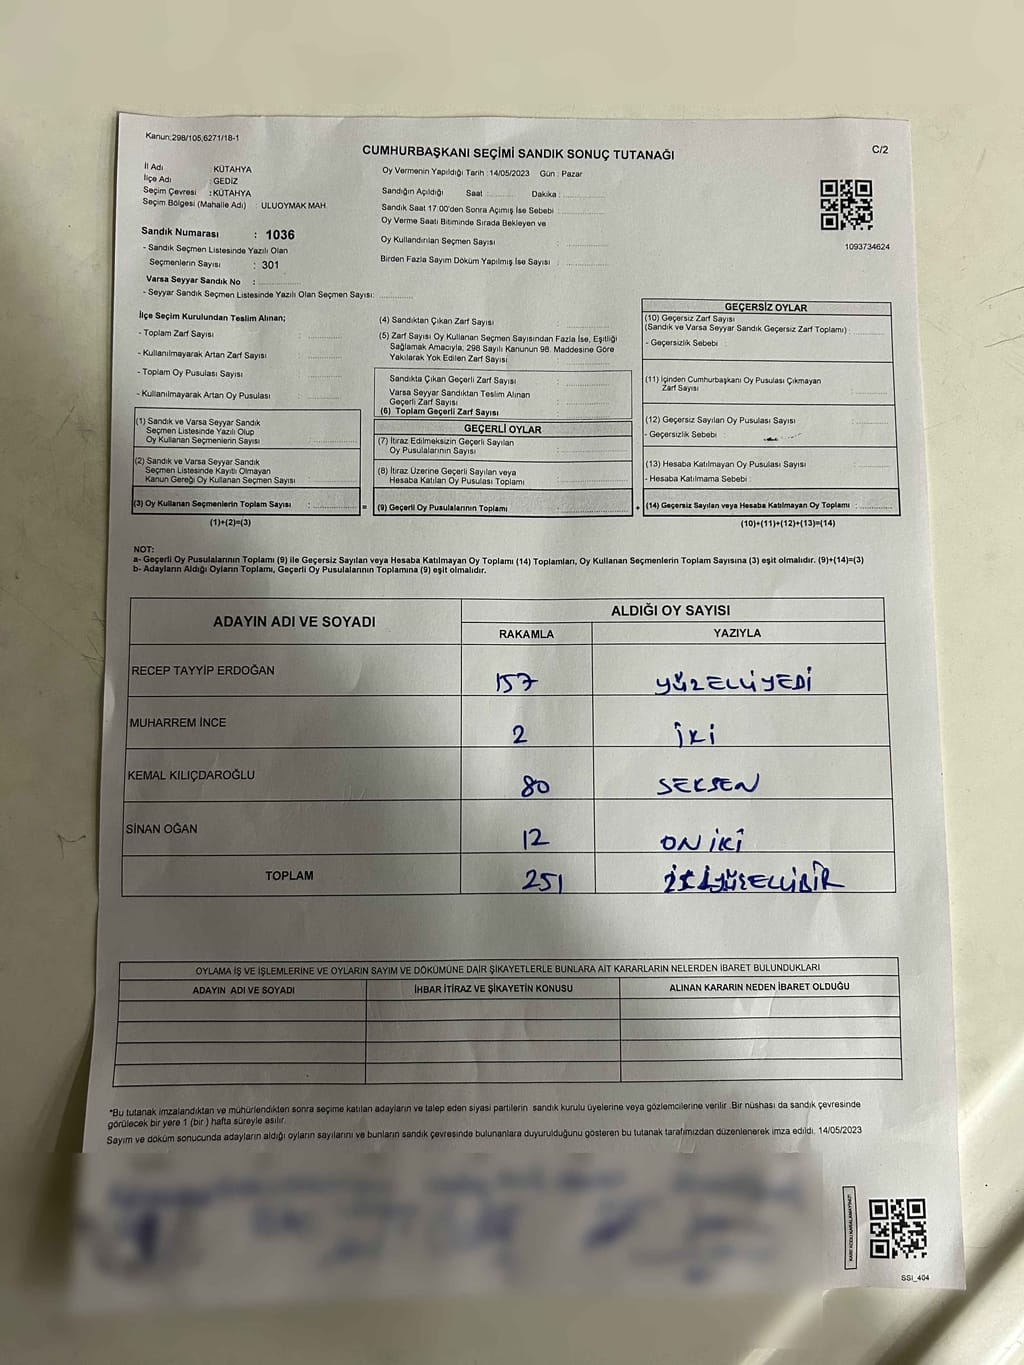 Kanun:298/105,6271/18-1
CUMHURBAŞKANI SEÇİMİ SANDIK SONUÇ TUTANAĞI
C/2
İl Adı : KÜTAHYA
İlçe Adı : GEDİZ
Seçim Çevresi : KÜTAHYA
Seçim Bölgesi (Mahalle Adı) : ULUOYMAK MAH.
Oy Vermenin Yapıldığı Tarih : 14/05/2023 Gün : Pazar
Sandığın Açıldığı Saat : Dakika :
Sandık Saat 17:00'den Sonra Açımış İse Sebebi :
Oy Verme Saati Bitiminde Sırada Bekleyen ve
Oy Kullandırılan Seçmen Sayısı :
Birden Fazla Sayım Döküm Yapılmış İse Sayısı :
1093734624
Sandık Numarası : 1036
- Sandık Seçmen Listesinde Yazılı Olan
Seçmenlerin Sayısı : 301
Varsa Seyyar Sandık No :
- Seyyar Sandık Seçmen Listesinde Yazılı Olan Seçmen Sayısı:
İlçe Seçim Kurulundan Teslim Alınan;
- Toplam Zarf Sayısı :
- Kullanılmayarak Artan Zarf Sayısı :
- Toplam Oy Pusulası Sayısı :
- Kullanılmayarak Artan Oy Pusulası :
(1) Sandık ve Varsa Seyyar Sandık
Seçmen Listesinde Yazılı Olup
Oy Kullanan Seçmenlerin Sayısı :
(2) Sandık ve Varsa Seyyar Sandık
Seçmen Listesinde Kayıtlı Olmayan
Kanun Gereği Oy Kullanan Seçmen Sayısı :
(3) Oy Kullanan Seçmenlerin Toplam Sayısı :
(1)+(2)=(3)
=
(4) Sandıktan Çıkan Zarf Sayısı :
(5) Zarf Sayısı Oy Kullanan Seçmen Sayısından Fazla İse, Eşitliği
Sağlamak Amacıyla, 298 Sayılı Kanunun 98. Maddesine Göre
Yakılarak Yok Edilen Zarf Sayısı :
Sandıkta Çıkan Geçerli Zarf Sayısı :
Varsa Seyyar Sandıktan Teslim Alınan
Geçerli Zarf Sayısı :
(6) Toplam Geçerli Zarf Sayısı :
GEÇERLİ OYLAR
(7) İtiraz Edilmeksizin Geçerli Sayılan
Oy Pusulalarının Sayısı :
(8) İtiraz Üzerine Geçerli Sayılan veya
Hesaba Katılan Oy Pusulası Toplamı :
(9) Geçerli Oy Pusulalarının Toplamı :
+
GEÇERSİZ OYLAR
(10) Geçersiz Zarf Sayısı
(Sandık ve Varsa Seyyar Sandık Geçersiz Zarf Toplamı) :
- Geçersizlik Sebebi :
(11) İçinden Cumhurbaşkanı Oy Pusulası Çıkmayan
Zarf Sayısı :
(12) Geçersiz Sayılan Oy Pusulası Sayısı :
- Geçersizlik Sebebi :
(13) Hesaba Katılmayan Oy Pusulası Sayısı :
- Hesaba Katılmama Sebebi :
(14) Geçersiz Sayılan veya Hesaba Katılmayan Oy Toplamı :
(10)+(11)+(12)+(13)=(14)
NOT:
a- Geçerli Oy Pusulalarının Toplamı (9) ile Geçersiz Sayılan veya Hesaba Katılmayan Oy Toplamı (14) Toplamları, Oy Kullanan Seçmenlerin Toplam Sayısına (3) eşit olmalıdır. (9)+(14)=(3)
b- Adayların Aldığı Oyların Toplamı, Geçerli Oy Pusulalarının Toplamına (9) eşit olmalıdır.
ADAYIN ADI VE SOYADI ALDIĞI OY SAYISI
RAKAMLA YAZIYLA
RECEP TAYYİP ERDOĞAN 157 YÜZELLİYEDİ
MUHARREM İNCE 2 İKİ
KEMAL KILIÇDAROĞLU 80 SEKSEN
SİNAN OĞAN 12 ON İKİ
TOPLAM 251 İKİYÜZELLİBİR
OYLAMA İŞ VE İŞLEMLERİNE VE OYLARIN SAYIM VE DÖKÜMÜNE DAİR ŞİKAYETLERLE BUNLARA AİT KARARLARIN NELERDEN İBARET BULUNDUKLARI
ADAYIN ADI VE SOYADI İHBAR İTİRAZ VE ŞİKAYETİN KONUSU ALINAN KARARIN NEDEN İBARET OLDUĞU
*Bu tutanak imzalandıktan ve mühürlendikten sonra seçime katılan adayların ve talep eden siyasi partilerin sandık kurulu üyelerine veya gözlemcilerine verilir .Bir nüshası da sandık çevresinde
görülecek bir yere 1 (bir ) hafta süreyle asılır.
Sayım ve döküm sonucunda adayların aldığı oyların sayılarını ve bunların sandık çevresinde bulunanlara duyurulduğunu gösteren bu tutanak tarafımızdan düzenlenerek imza edildi. 14/05/2023
SSI_404